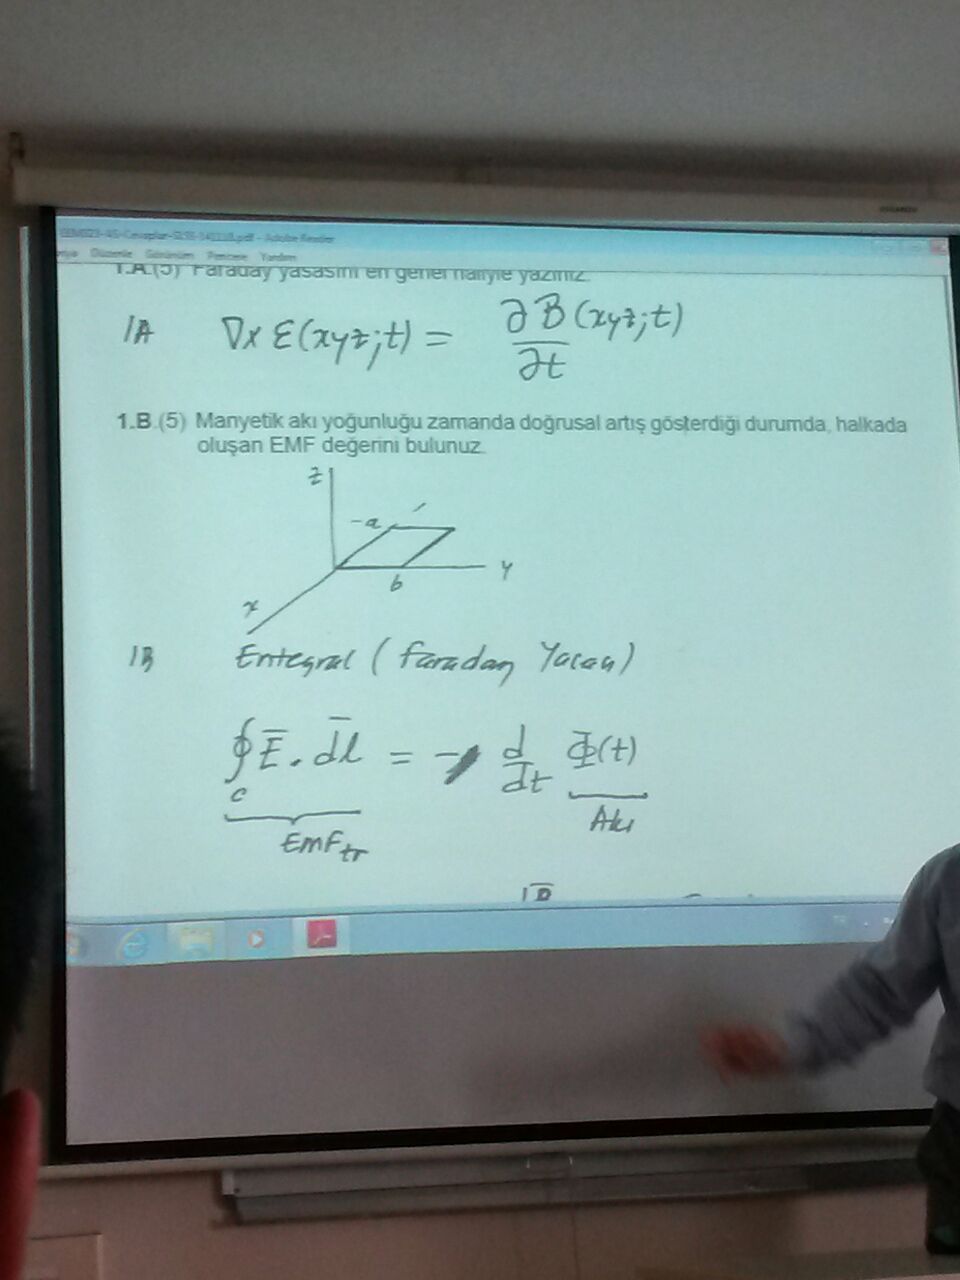 Adobe Reader
Düzenle Görünüm Pencere Yardım
1.A.(5) Faraday yasasını en genel haliyle yazınız.
1A ∇x Ɛ(xyz;t) = ∂B(xyz;t)/∂t
1.B.(5) Manyetik akı yoğunluğu zamanda doğrusal artış gösterdiği durumda, halkada
oluşan EMF değerini bulunuz.
z
-a
y
b
x
1B Entegral (Faraday Yasası)
∮ Ē . d̄l = - d/dt Φ(t)
c
Akı
EmF tr